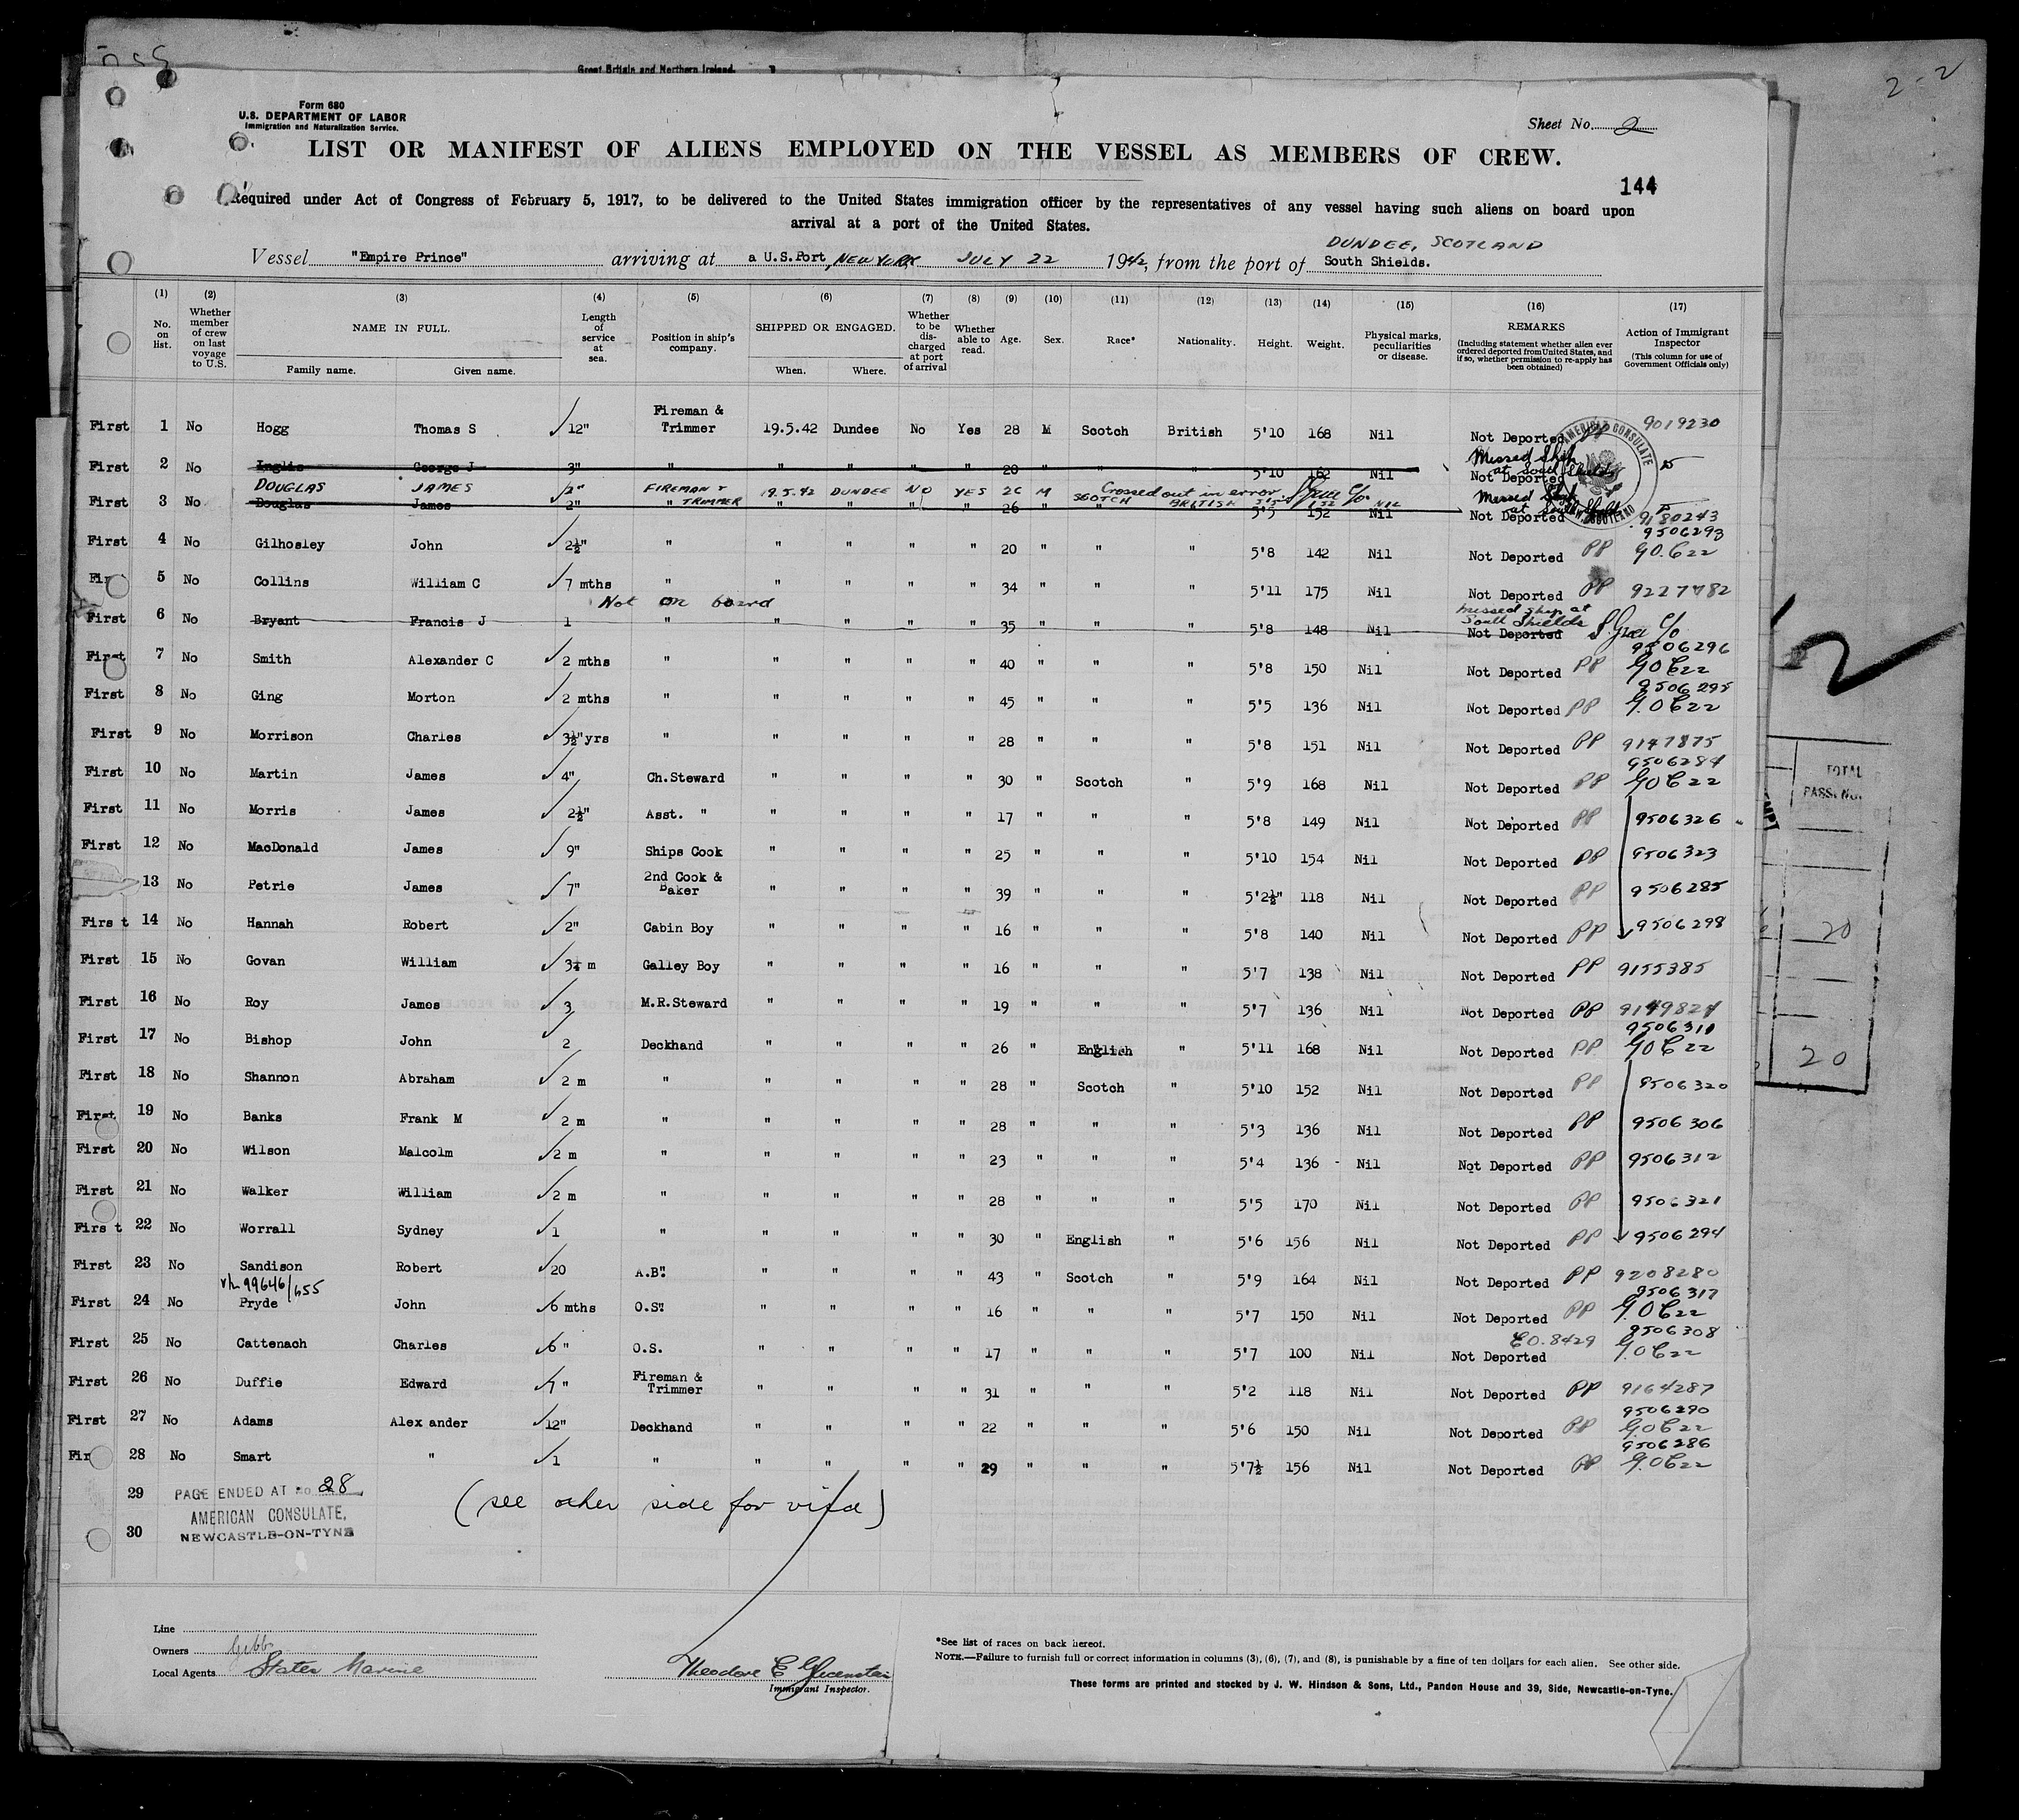 Great Britain and Northern Ireland.
2-2
Form 680
U.S. DEPARTMENT OF LABOR
Immigration and Naturalization Service.
Sheet No. 2
LIST OR MANIFEST OF ALIENS EMPLOYED ON THE VESSEL AS MEMBERS OF CREW.
144
Required under Act of Congress of February 5, 1917, to be delivered to the United States immigration officer by the representatives of any vessel having such aliens on board upon
arrival at a port of the United States.
DUNDEE, SCOTLAND
Vessel "Empire Prince" arriving at a U.S.Port, NEW YORK JULY 22 1942, from the port of South Shields.
(1) (2) (3) (4) (5) (6) (7) (8) (9) (10) (11) (12) (13) (14) (15) (16) (17)
No. on list. Whether member of crew on last voyage to U.S. NAME IN FULL. Family name. Given name. Length of service at sea. Position in ship's company. SHIPPED OR ENGAGED. When. Where. Whether to be discharged at port of arrival Whether able to read. Age. Sex. Race* Nationality. Height. Weight. Physical marks, peculiarities or disease. REMARKS (Including statement whether alien ever ordered deported from United States, and if so, whether permission to re-apply has been obtained) Action of Immigrant Inspector (This column for use of Government Officials only)
First 1 No Hogg Thomas S 12" Fireman & Trimmer 19.5.42 Dundee No Yes 28 M Scotch British 5'10 168 Nil Not Deported PP 9019230
First 2 No Inglis George J 3" " " " " " 20 " " " 5'10 162 Nil Not Deported Missed Ship at South Shields
DOUGLAS JAMES 2" FIREMAN & TRIMMER 19.5.42 DUNDEE NO YES 26 M SCOTCH BRITISH 5'5 152 NIL Crossed out in error
First 3 No Douglas James 2" " " " " " 26 " " " 5'5 152 Nil Not Deported Missed Ship at South Shields 9180243
First 4 No Gilhosley John 2½" " " " " " 20 " " " 5'8 142 Nil Not Deported PP 9506293 GOC22
Fir 5 No Collins William C 7 mths " " " " " 34 " " " 5'11 175 Nil Not Deported PP 9227782
Not on board
First 6 No Bryant Francis J 1 " " " " " 35 " " " 5'8 148 Nil Not Deported missed ship at South Shields
First 7 No Smith Alexander C 2 mths " " " " " 40 " " " 5'8 150 Nil Not Deported PP 9506296 GOC22
First 8 No Ging Morton 2 mths " " " " " 45 " " " 5'5 136 Nil Not Deported PP 9506295 GOC22
First 9 No Morrison Charles 3½" yrs " " " " " 28 " " " 5'8 151 Nil Not Deported PP 9147875
First 10 No Martin James 4" Ch.Steward " " " " 30 " Scotch " 5'9 168 Nil Not Deported PP 9506284 GOC22
First 11 No Morris James 2½" Asst. " " " " " 17 " " " 5'8 149 Nil Not Deported PP 9506326
First 12 No MacDonald James 9" Ships Cook " " " " 25 " " " 5'10 154 Nil Not Deported PP 9506323
13 No Petrie James 7" 2nd Cook & Baker " " " " 39 " " " 5'2½" 118 Nil Not Deported PP 9506285
Firs t 14 No Hannah Robert 2" Cabin Boy " " " " 16 " " " 5'8 140 Nil Not Deported PP 9506298
First 15 No Govan William 3¼ m Galley Boy " " " " 16 " " " 5'7 138 Nil Not Deported PP 9155385
First 16 No Roy James 3 M.R.Steward " " " " 19 " " " 5'7 136 Nil Not Deported PP 9149824
First 17 No Bishop John 2 Deckhand " " " " 26 " English " 5'11 168 Nil Not Deported PP 9506311 GOC22
First 18 No Shannon Abraham 2 m " " " " " 28 " Scotch " 5'10 152 Nil Not Deported PP 9506320
First 19 No Banks Frank M 2 m " " " " " 28 " " " 5'3 136 Nil Not Deported PP 9506306
First 20 No Wilson Malcolm 2 m " " " " " 23 " " " 5'4 136 Nil Not Deported PP 9506312
First 21 No Walker William 2 m " " " " " 28 " " " 5'5 170 Nil Not Deported PP 9506321
Firs t 22 No Worrall Sydney 1 " " " " " 30 " English " 5'6 156 Nil Not Deported PP 9506294
First 23 No Sandison Robert 20 A.B. " " " " 43 " Scotch " 5'9 164 Nil Not Deported PP 9208280
99646/655
First 24 No Pryde John 6 mths O.S. " " " " 16 " " " 5'7 150 Nil Not Deported PP 9506317 GOC22
First 25 No Cattenach Charles 6 " O.S. " " " " 17 " " " 5'7 100 Nil Not Deported EO.8429 9506308 GOC22
First 26 No Duffie Edward 7 " Fireman & Trimmer " " " " 31 " " " 5'2 118 Nil Not Deported PP 9164287
First 27 No Adams Alex ander 12" Deckhand " " " " 22 " " " 5'6 150 Nil Not Deported PP 9506290 GOC22
Fir 28 No Smart " 1 " " " " " 29 " " " 5'7½ 156 Nil Not Deported PP 9506286 GOC22
29 PAGE ENDED AT no. 28
(see other side for visa)
AMERICAN CONSULATE,
30 NEWCASTLE-ON-TYNE
TOTAL
PASSENG.
20
20
Line
Owners Gibbs
Local Agents States Marine
Theodore E Glucenstein
Immigrant Inspector.
*See list of races on back hereof.
NOTE.—Failure to furnish full or correct information in columns (3), (6), (7), and (8), is punishable by a fine of ten dollars for each alien. See other side.
These forms are printed and stocked by J. W. Hindson & Sons, Ltd., Pandon House and 39, Side, Newcastle-on-Tyne.